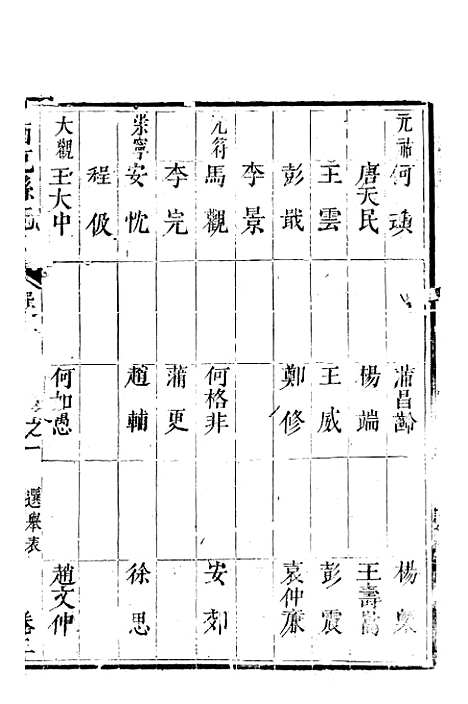 元祐 何瑱 蒲昌齡 楊
唐天民 楊端 王壽嵩
王雲 王威 彭震
彭戢 鄭修 袁仲廉
李景
元符 馬觀 何格非 安郊
李完 蒲更
崇寧 安忱 趙輔 徐思
程伋
大觀 王大中 何如愚 趙文仲
縣志 之一 選舉表 卷三